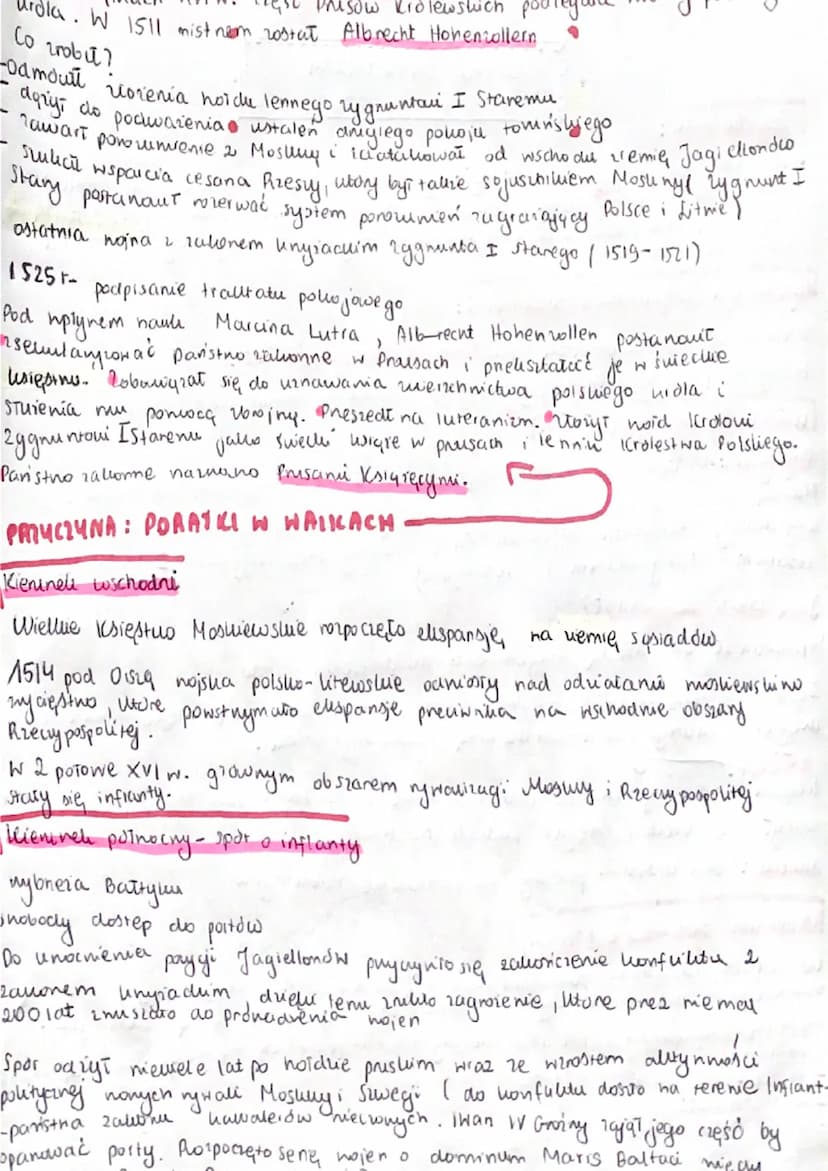 króla. W 1511 mistrzem został Albrecht Hohenzollern
Co zrobił?
-odmówił złożenia hołdu lennego Zygmuntowi I Staremu
- dążył do podważenia ustaleń drugiego pokoju toruńskiego
- zawarł porozumienie z Moskwą i zaatakował od wschodu ziemię Jagiellonów
- szukał wsparcia cesarza Rzeszy, który był także sojusznikiem Moskwy( Zygmunt I
Stary postanowił rozerwać system porozumień zagrażający Polsce i Litwie)
ostatnia wojna z zakonem krzyżackim Zygmunta I starego (1519-1521)
1525r- podpisanie traktatu pokojowego
Pod wpływem nauk Marcina Lutra, Albrecht Hohenzollen postanowił
zsekularyzować państwo zakonne w Prusach i przekształcić je w świeckie
księstwo. Zobowiązał się do uznawania zwierzchnictwa polskiego króla i
służenia mu pomocą zbrojną. Przeszedł na luteranizm. Złożył hołd Królowi
Zygmuntowi I Staremu jako świecki książę w prusach i lennik Królestwa Polskiego.
Państwo zakonne nazwano Prusami Książęcymi.
PRZYCZYNA: PORAŻKI W WALKACH
Kierunek wschodni
Wielkie Księstwo Moskiewskie rozpoczęło ekspansję, na ziemię sąsiadów
1514 pod Orszą wojska polsko-litewskie odniosły nad oddziałami moskiewskimi
zwycięstwo, które powstrzymało ekspansje przeciwnika na wschodnie obszary
Rzeczypospolitej.
W 2 połowie XVI w. głównym obszarem rywalizacji Moskwy i Rzeczypospolitej
stały się inflanty.
Kierunek północny- spór o inflanty
wybrzeża Bałtyku
swobody dostęp do portów
Do umocnienia pozycji Jagiellonów przyczyniło się zakończenie konfliktu z
zakonem krzyżackim, dzięki temu znikło zagrożenie, które przez niemal
200 lat zmuszało do prowadzenia wojen
Spór odżył niewiele lat po hołdzie pruskim wraz ze wzrostem aktywności
politycznej nowych rywali Moskwy i Szwecji ( do konfliktu doszło na terenie Inflant-
-państwa zakonu kawalerów mieczowych. Iwan IV Groźny zajął jego część by
opanować porty. Rozpoczęto serię wojen o dominum Maris Baltaci między